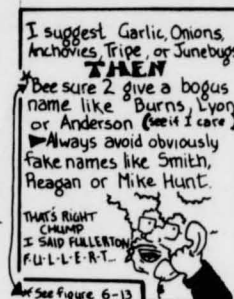 I suggest Garlic, Onions,
Anchovies, Tripe, or Junebugs
THEN
*Bee sure 2 give a bogus
name like Burns, Lyon
or Anderson (see if I care)
▶Always avoid obviously
fake names like Smith,
Reagan or Mike Hunt.
THAT'S RIGHT
CHUMP
I SAID FULLERTON
F-U-L-L-E-R-T...
*See figure 6-13